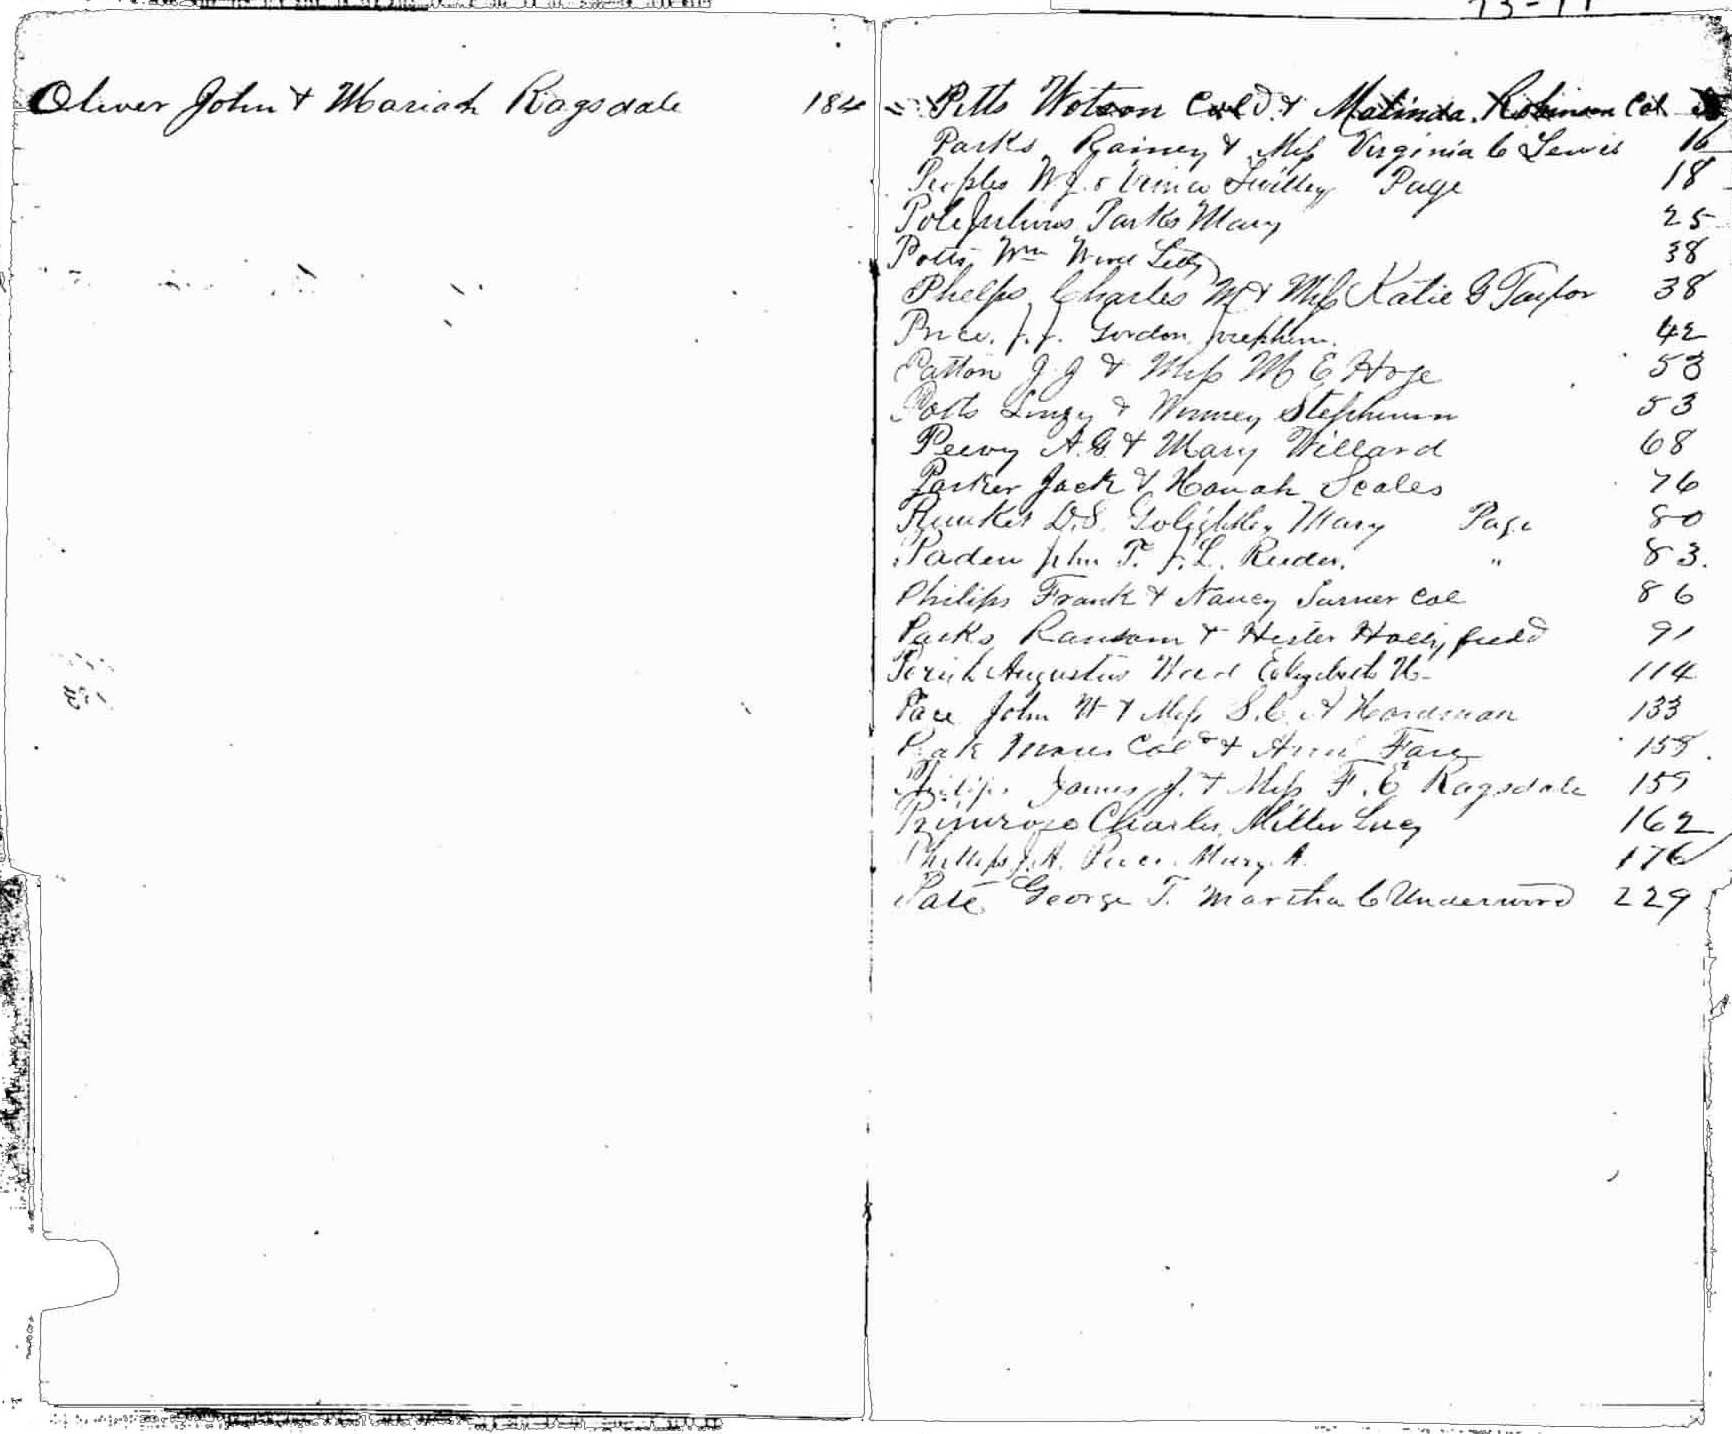 73-77
Oliver John & Mariah Ragsdale 184
Pitts Watson Cold. & Malinda Robinson Col
Parks Rainey & Miss Virginia C Lewis 16
Peoples W J. & Page 18
Pole Julius Parks Mary 25
Potts Wm Letty 38
Phelps Charles M & Miss Katie G Taylor 38
Price. J. J. Gordon Josephine. 42
Patton J J & Miss M E Hoge 53
Potts & Winney Stephenson 53
Peevy A. G. & Mary Willard 68
Parker Jack & Hanah Scales 76
D. S. Golightley Mary Page 80
Paden John T. J. L. Reeder. " 83.
Philips Frank & Nancy Turner Col 86
Parks Ransom & Hester Hollyfield 91
Augustus Elizabeth 114
Pace John W & Miss S. C. A Hardman 133
Col & 158
James J. & Miss F. E Ragsdale 159
Primrose Charles Miller Lucy 162
Phillips J. A. Mary. A. 176
Pate George T. Martha C Underwood 229